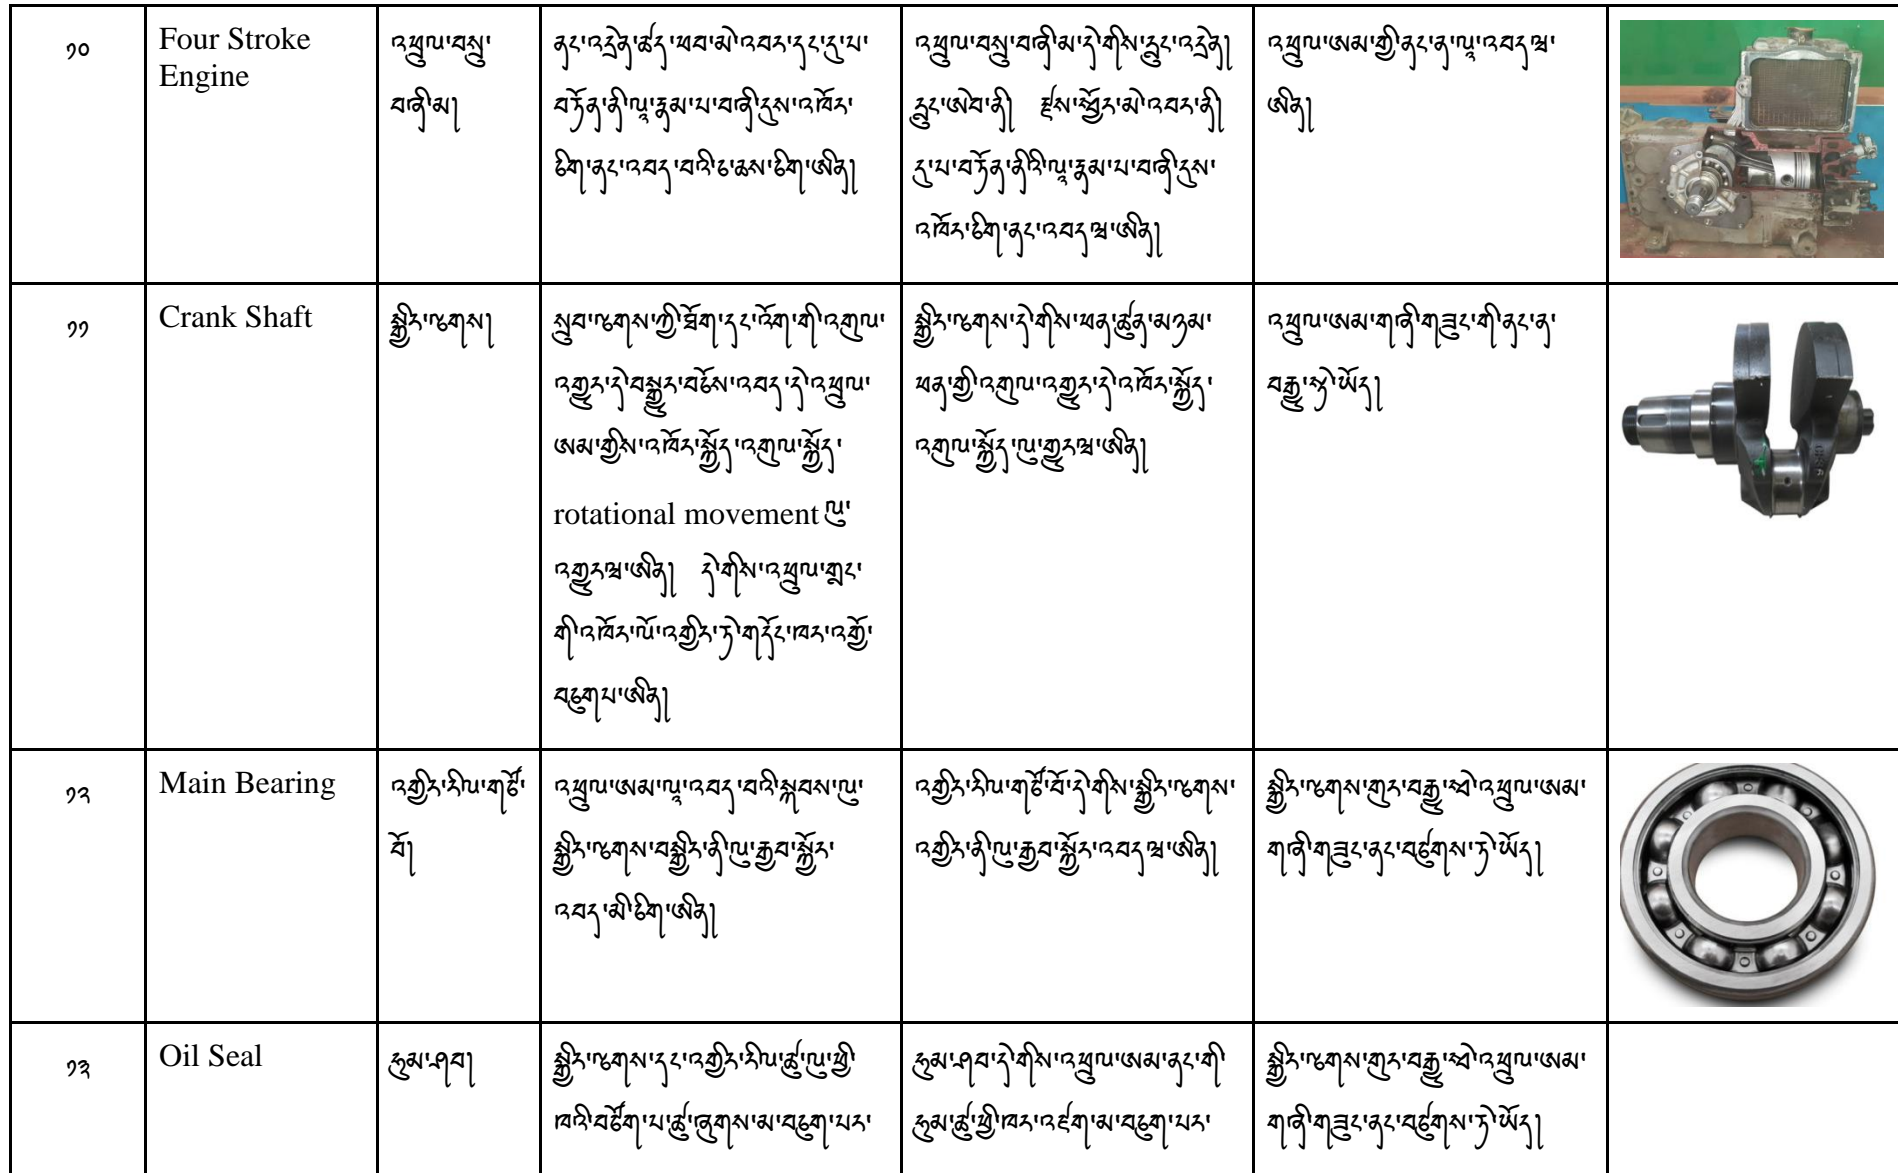 ༡༠
Four Stroke
Engine
འཕྲུལ་བསྲུ་
བཞི་མ།
ནང་འདྲེན་ཚད་ཕབ་མེ་འབར་དང་དུ་པ་
བཏོན་ནི་ལཱ་རྣམ་པ་བཞི་དུས་འཁོར་
ཅིག་ནང་འབད་བའི་ཅ་ཆས་ཅིག་ཨིན།
འཕྲུལ་བསྲུ་བཞི་མ་དེ་གིས་རླུང་འདྲེན།
རླུང་ཨེབ་ནི། རྫས་སྦྱོར་མེ་འབར་ནི།
དུ་པ་བཏོན་ནིའི་ལཱ་རྣམ་པ་བཞི་དུས་
འཁོར་ཅིག་ནང་འབདཝ་ཨིན།
འཕྲུལ་ཨམ་གྱི་ནང་ན་ལཱ་འབདཝ་
ཨིན།
༡༡
Crank Shaft
སྒྱིར་ལྕགས།
སྲུབ་ལྕགས་ཀྱི་ཐོག་དང་འོག་གི་འགུལ་
འགྱུར་དེ་བསྒྱུར་བཅོས་འབད་དེ་འཕྲུལ་
ཨམ་གྱིས་འཁོར་སྐྱོད་འགུལ་སྐྱོད་
rotational movement ལུ་
འགྱུརཝ་ཨིན། དེ་གིས་འཕྲུལ་གླང་
གི་འཁོར་ལོ་འགྱིར་ཏེ་གདོང་ཁར་འགྱོ་
བཅུགཔ་ཨིན།
སྒྱིར་ལྕགས་དེ་གིས་ཕན་ཚུན་མཉམ་
ཕན་གྱི་འགུལ་འགྱུར་དེ་འཁོར་སྐྱོད་
འགུལ་སྐྱོད་ལུ་གྱུརཝ་ཨིན།
འཕྲུལ་ཨམ་གཞི་གཟུང་གི་ནང་ན་
བརྒྱུ་སྟེ་ཡོད།
༡༢
Main Bearing
འགྱིར་རིལ་གཙོ་
བོ།
འཕྲུལ་ཨམ་ལཱ་འབད་བའི་སྐབས་ལུ་
སྒྱིར་ལྕགས་བསྒྱིར་ནི་ལུ་རྒྱབ་སྐྱོར་
འབད་མི་ཅིག་ཨིན།
འགྱིར་རིལ་གཙོ་བོ་དེ་གིས་སྒྱིར་ལྕགས་
འགྱིར་ནི་ལུ་རྒྱབ་སྐྱོར་འབདཝ་ཨིན།
སྒྱིར་ལྕགས་གུར་བརྒྱུ་སྦེ་འཕྲུལ་ཨམ་
གཞི་གཟུང་ནང་བཙུགས་ཏེ་ཡོད།
༡༣
Oil Seal
ཧུམ་ཤབ།
སྒྱིར་ལྕགས་དང་འགྱིར་རིལ་ཚུ་ལུ་ཕྱི་
ཁའི་བཙོག་པ་ཚུ་ཞུགས་མ་བཅུག་པར་
ཧུམ་ཤབ་དེ་གིས་འཕྲུལ་ཨམ་ནང་གི་
ཧུམ་ཚུ་ཕྱི་ཁར་འཛག་མ་བཅུག་པར་
སྒྱིར་ལྕགས་གུར་བརྒྱུ་སྦེ་འཕྲུལ་ཨམ་
གཞི་གཟུང་ནང་བཙུགས་ཏེ་ཡོད།